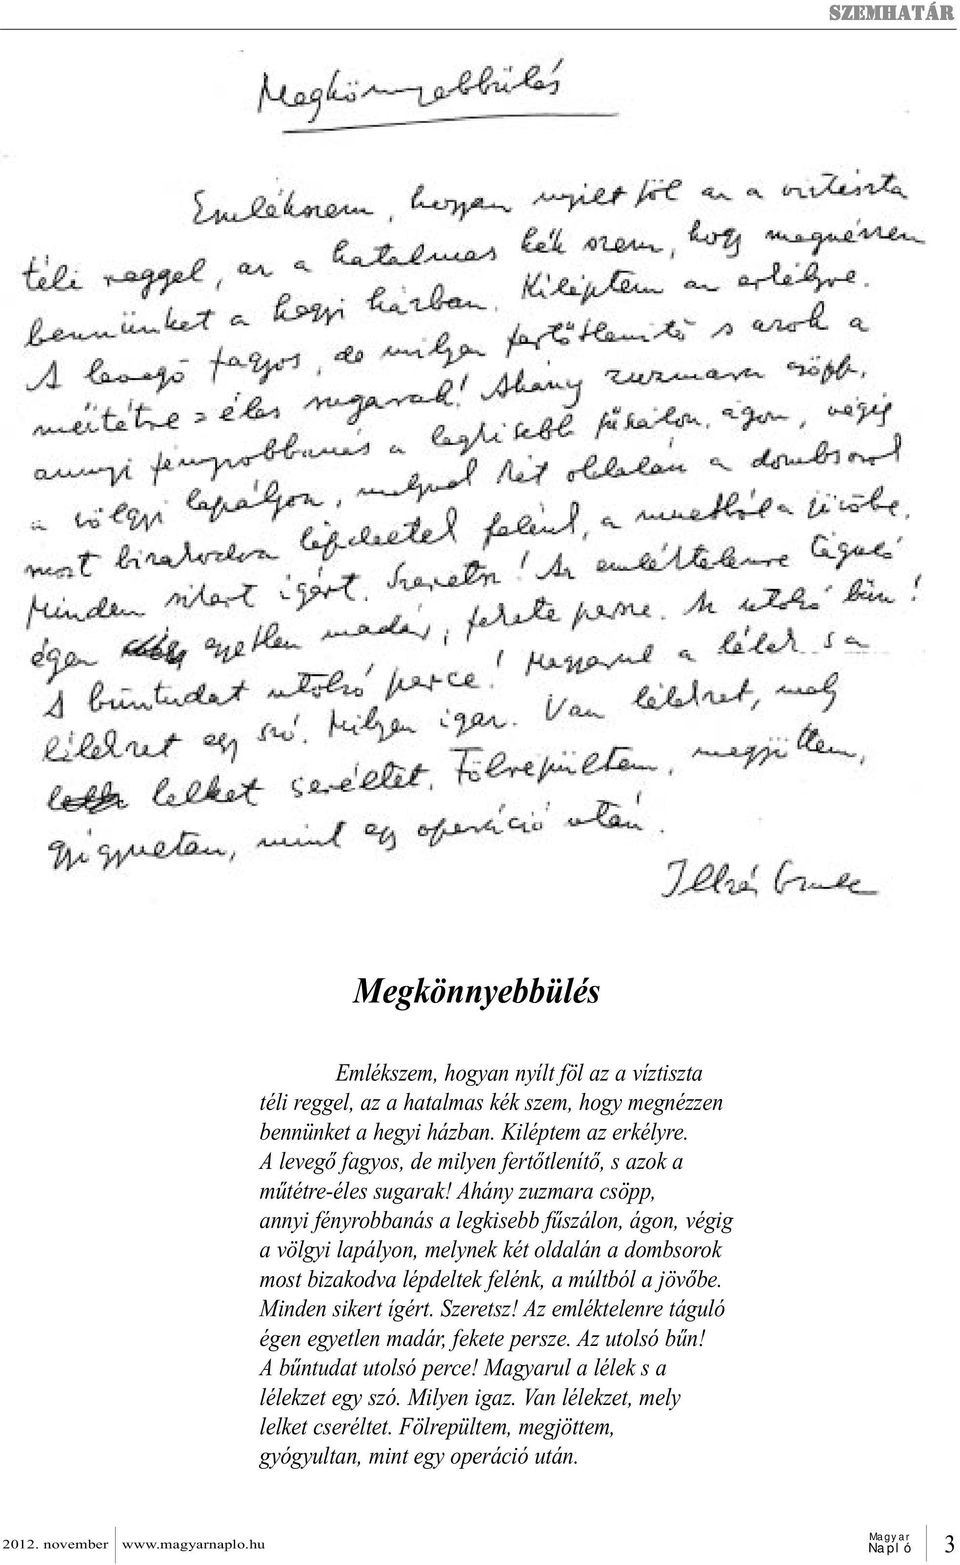 SZEMHATÁR
Megkönnyebbülés
Emlékszem, hogyan nyílt föl az a víztiszta
téli reggel, az a hatalmas kék szem, hogy megnézzen
bennünket a hegyi házban. Kiléptem az erkélyre.
A levegő fagyos, de milyen fertőtlenítő s azok a
műtétre-éles sugarak! Ahány zuzmara csöpp,
annyi fényrobbanás a legkisebb fűszálon, ágon, végig
a völgyi lapályon, melynek két oldalán a dombsorok
most bizakodva lépdeltek felénk, a múltból a jövőbe.
Minden sikert ígért. Szeretsz! Az emléktelenre táguló
égen egyetlen madár, fekete persze. Az utolsó bűn!
A bűntudat utolsó perce! Magyarul a lélek s a
lélekzet egy szó. Milyen igaz. Van lélekzet, mely
lelket cseréltet. Fölrepültem, megjöttem,
gyógyultan, mint egy operáció után.
Illyés Gyula
Megkönnyebbülés
Emlékszem, hogyan nyílt föl az a víztiszta
téli reggel, az a hatalmas kék szem, hogy megnézzen
bennünket a hegyi házban. Kiléptem az erkélyre.
A levegő fagyos, de milyen fertőtlenítő, s azok a
műtétre-éles sugarak! Ahány zuzmara csöpp,
annyi fényrobbanás a legkisebb fűszálon, ágon, végig
a völgyi lapályon, melynek két oldalán a dombsorok
most bizakodva lépdeltek felénk, a múltból a jövőbe.
Minden sikert ígért. Szeretsz! Az emléktelenre táguló
égen egyetlen madár, fekete persze. Az utolsó bűn!
A bűntudat utolsó perce! Magyarul a lélek s a
lélekzet egy szó. Milyen igaz. Van lélekzet, mely
lelket cseréltet. Fölrepültem, megjöttem,
gyógyultan, mint egy operáció után.
2012. november www.magyarnaplo.hu Magyar Napló 3